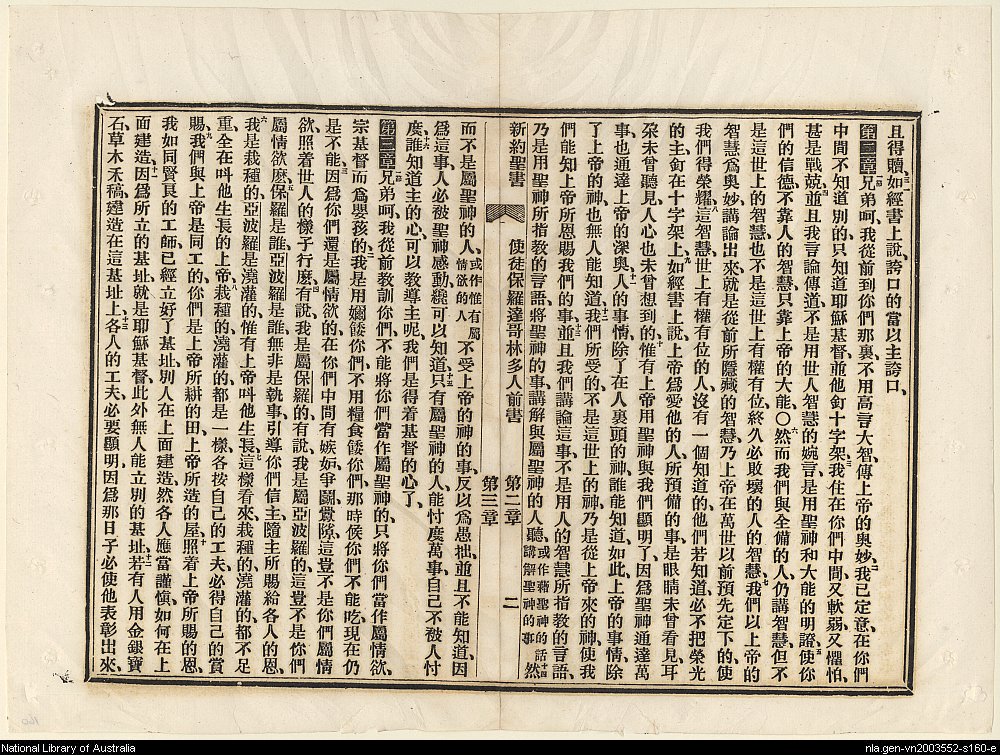 且得贖、如經書上說、誇口的當以主誇口、
第二章 兄弟呵、我從前到你們那裏、不用高言大智、傳上帝的奧妙、我已定意在你們
中間不知道別的、只知道耶穌基督、並他釘十字架、我住在你們中間、又軟弱又懼怕、
甚是戰兢、並且我言論傳道、不是用世人智慧的婉言、是用聖神和大能的明證、使你
們的信德、不靠人的智慧、只靠上帝的大能、〇然而我們與全備的人、仍講智慧、但不
是這世上的智慧、也不是這世上有權有位、終久必敗壞的人的智慧、我們以上帝的
智慧爲奧妙、講論出來、就是從前所隱藏的智慧、乃上帝在萬世以前、預先定下的、使
我們得榮耀、這智慧世上有權有位的人、沒有一個知道的、他們若知道、必不把榮光
的主釘在十字架上、如經書上說、上帝爲愛他的人、所預備的事、是眼睛未曾看見、耳
朶未曾聽見、人心也未曾想到的、惟有上帝用聖神與我們顯明了、因爲聖神通達萬
事、也通達上帝的深奧、人的事情、除了在人裏頭的神、誰能知道、如此、上帝的事情、除
了上帝的神、也無人能知道、我們所受的、不是這世上的神、乃是從上帝來的神、使我
們能知上帝所恩賜我們的事、並且我們講論這事、不是用人的智慧所指敎的言語、
乃是用聖神所指敎的言語、將聖神的事、講解與屬聖神的人聽、或作藉聖神的話講解聖神的事然
新約聖書 使徒保羅達哥林多人前書 第二章 第三章 二
而不是屬聖神的人、或作惟有屬情欲的人不受上帝的神的事、反以爲愚拙、並且不能知道、因
爲這事、人必被聖神感動、纔可以知道、只有屬聖神的人、能忖度萬事、自己不被人忖
度、誰知道主的心、可以敎導主呢、我們是得着基督的心了、
第三章 兄弟呵、我從前敎訓你們、不能將你們當作屬聖神的、只將你們當作屬情欲、
宗基督而爲嬰孩的、我是用嬭餧你們、不用糧食餧你們、那時候你們不能吃、現在仍
是不能、因爲你們還是屬情欲的、在你們中間有嫉妬爭鬭釁隙、這豈不是你們屬情
欲、照着世人的樣子行麽、有說、我是屬保羅的、有說、我是屬亞波羅的、這豈不是你們
屬情欲麽、保羅是誰、亞波羅是誰、無非是執事、引導你們信主、隨主所賜給各人的恩、
我是栽種的、亞波羅是澆灌的、惟有上帝呌他生長、這樣看來、栽種的、澆灌的、都不足
重、全在呌他生長的上帝、栽種的、澆灌的、都是一樣、各按自己的工夫、必得自己的賞
賜、我們與上帝是同工的、你們是上帝所耕的田、上帝所造的屋、照着上帝所賜的恩、
我如同賢良的工師、已經立好了基址、別人在上面建造、然各人應當謹愼、如何在上
面建造、因爲所立的基址、就是耶穌基督、此外無人能立別的基址、若有人用金銀寶
石草木禾稿、建造在這基址上、各人的工夫、必要顯明、因爲那日子必使他表彰出來、
National Library of Australia
nla.gen-vn2003552-s160-e
160